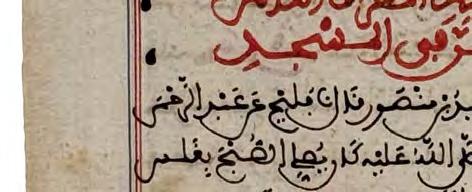 في المسجد
بن منصور قال نا فليح عن عبد الرحمن
صلى الله عليه كان يصلي الصبح بغلس